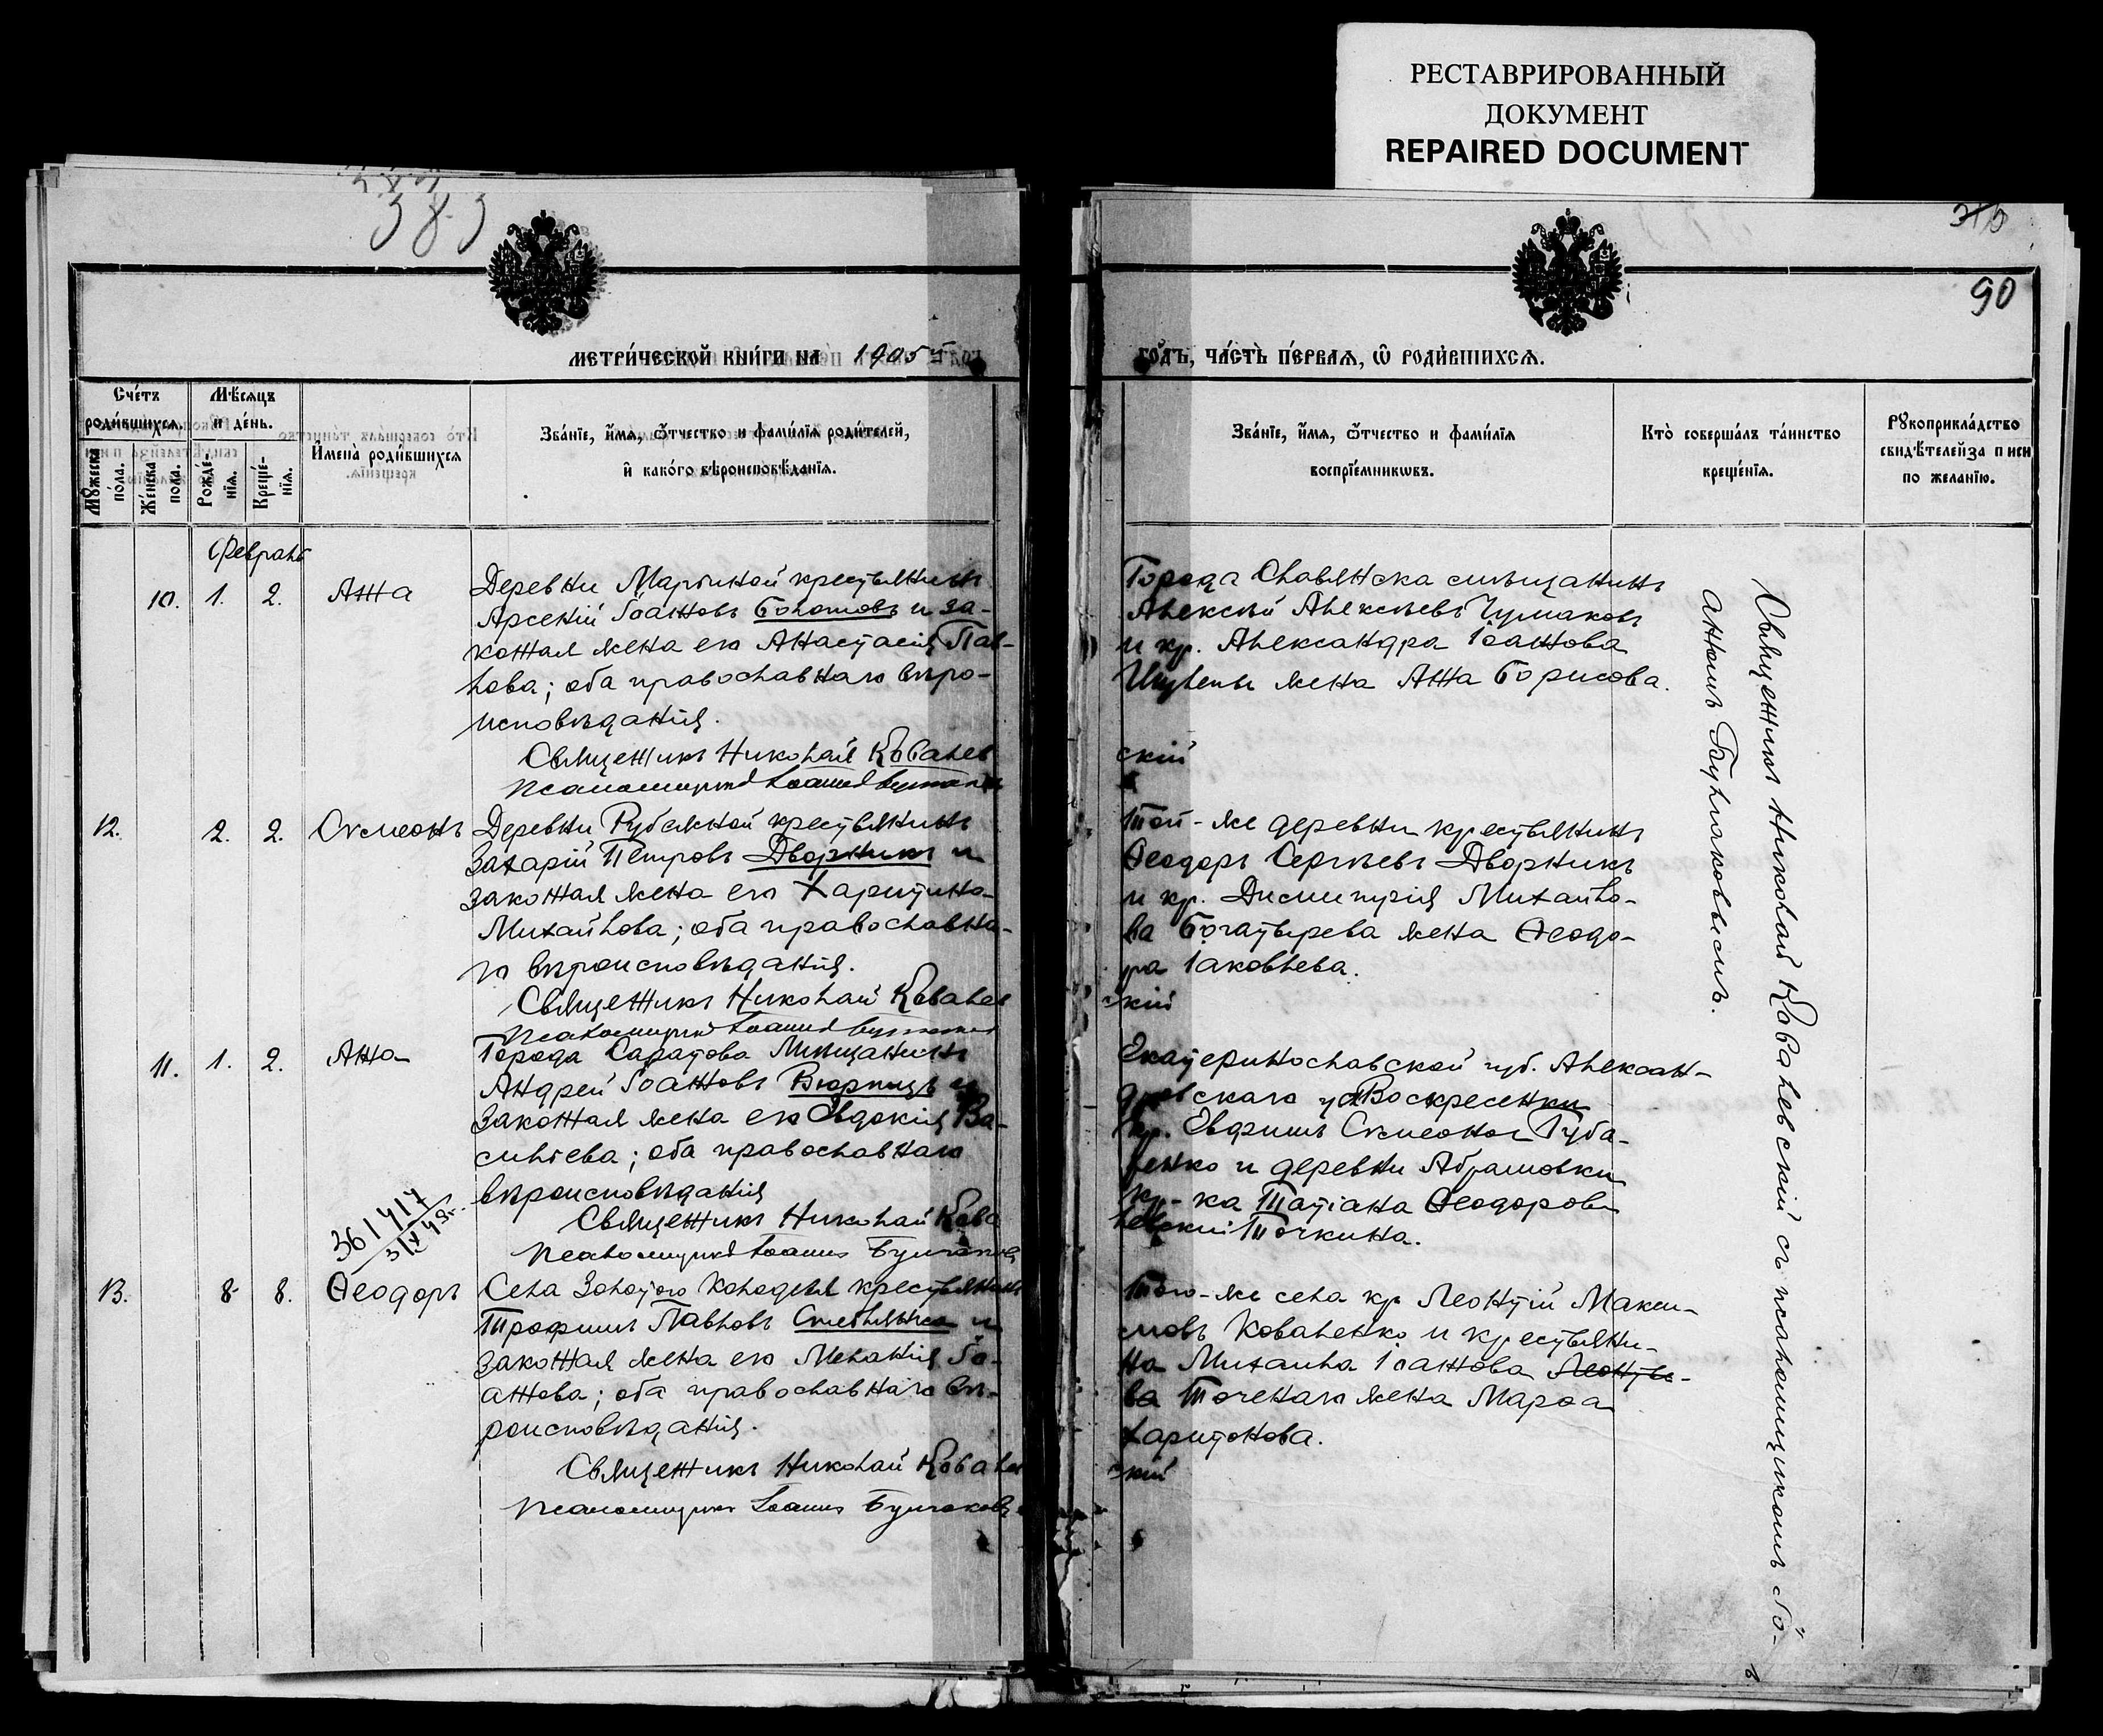 РЕСТАВРИРОВАННЫЙ
ДОКУМЕНТ
REPAIRED DOCUMENT
383
90
МЕТРИ́ЧЕСКОЙ КНИ́ГИ НА 1905
ГО́ДЪ, ЧА́СТЬ ПЕ́РВАЯ, Ѡ РОДИ́ВШИХСЯ.
Сче́тъ
роди́вшихся.
Мѣ́сяцъ
и де́нь.
Мꙋ́жеска
по́ла.
Же́нска
по́ла.
Рожде́-
нїя.
Креще́-
нїя.
И҆мена̀ роди́вшихся
Зва́нїе, и҆́мя, ѿтчество и фами́лїя роди́телей,
и҆ како́го вѣроисповѣ́данїя.
Зва́нїе, и҆́мя, ѿтчество и фами́лїя
воспрїе́мникѡвъ.
Кто̀ соверша́лъ та́инство
креще́нїя.
Рꙋкоприкла́дство
свидѣ́телей за писи
по жела́нїю.
Февраль
10. 1. 2. Анна
Деревни Марьиной крестьянинъ
Арсеній Іоанновъ Болотовъ и за-
конная жена его Анастасія Пав-
лова; оба православнаго вѣро-
исповѣданія.
Священникъ Николай Ковалев
скій
Псаломщикъ Іоаннъ
Города Славянска мѣщанинъ
Алексѣй Алексѣевъ Чумаковъ
и кр. Александра Іоаннова
жена Анна Борисова.
12. 2. 2. Сѵмеонъ
Деревни Рубежной крестьянинъ
Захарій Петровъ Дворникъ и
законная жена его Харитина
Михайлова; оба православна-
го вѣроисповѣданія.
Священникъ Николай Ковалев
скій
Псаломщикъ Іоаннъ
Той-же деревни крестьянинъ
Ѳеодоръ Сергѣевъ Дворникъ
и кр. Димитрія Михайло-
ва Богатырева жена Ѳеодо-
ра Іаковлева.
11. 1. 2. Анна
Города Саратова Мѣщанинъ
Андрей Іоанновъ и
законная жена его Евдокія Ва-
сильева; оба православнаго
вѣроисповѣданія
Священникъ Николай Кова
левскій
Псаломщикъ Іоаннъ Булгаковъ
Екатеринославской губ. Алексан-
дровскаго у. Воскресенки
кр. Ефримъ Сѵмеоновъ Губа-
ренко и деревни Абрамовки
кр-ка Татіана Ѳеодорова
Точкина.
13. 8. 8. Ѳеодоръ
Села Золотого Колодезя крестьянинъ
Трофимъ Павловъ и
законная жена его Меланія Іо-
аннова; оба православнаго вѣ-
роисповѣданія.
Священникъ Николай Ковалев
скій
Псаломщикъ Іоаннъ Булгаковъ
Того-же села кр Леонтій Макси-
мовъ Коваленко и крестьяни-
на Михаила Іоаннова
ва Точенаго жена Марѳа
Харитонова.
Священникъ Николай Ковалевскій съ псаломщикомъ Іо-
анномъ Булгаковымъ.